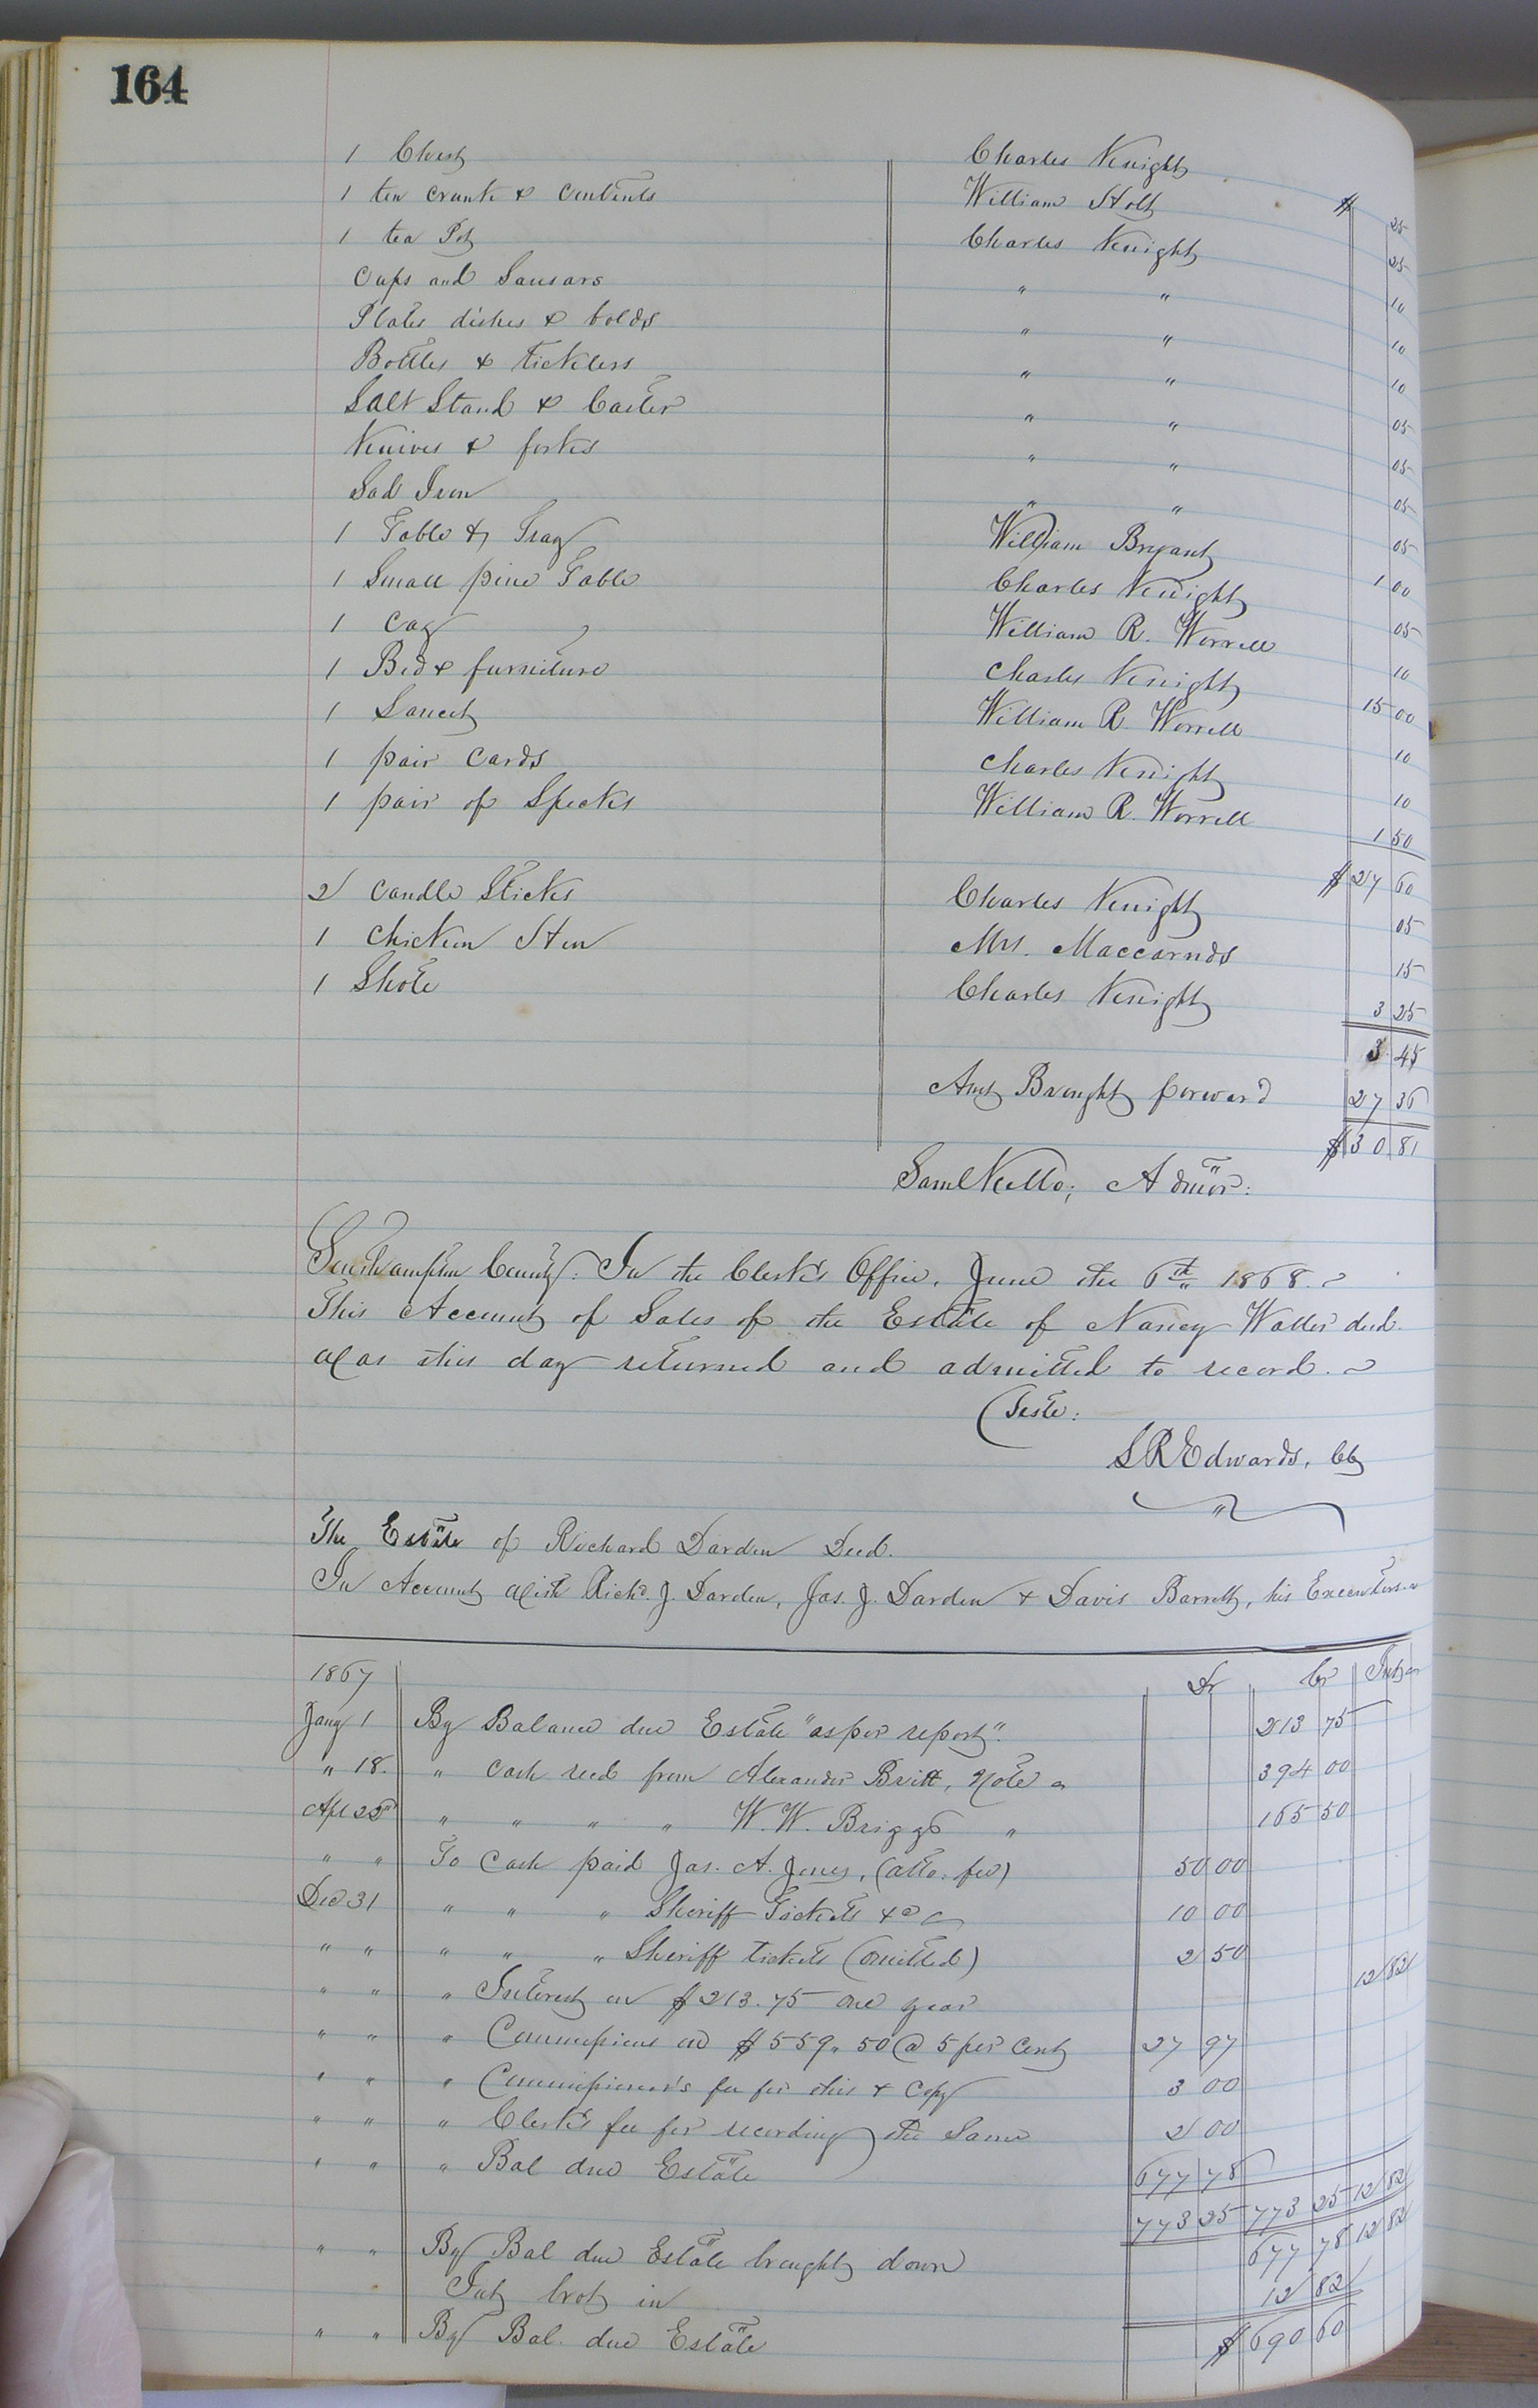 164
1 Chest Charles Knight $ 25
1 ten crunk & contents William Holt 25
1 tea Pot Charles Knight 10
Cups and Sausars " " 10
Plates dishes & bolds " " 10
Bottles & ticklers " " 05
Salt Stand & Caster " " 05
Knives & forks " " 05
Sad Iron " " 05
1 Table & Tray William Bryant 1 00
1 Small pine Table Charles Knight 05
1 Cag William R. Worrell 10
1 Bed & furniture Charles Knight 15 00
1 Lancet William R. Worrell 10
1 pair Cards Charles Knight 10
1 pair of Specks William R. Worrell 1 50
$27 60
2 Candle Sticks Charles Knight 05
1 Chicken Hen Mrs. Maccarnds 15
1 Shote Charles Knight 3 25
3 45
Amt Brought forward 27 36
$30 81
Saml Kello, Admor:
Southampton County: In the Clerk's Office, June the 6th 1868.
This Account of Sales of the Estate of Nancy Waller decd.
was this day returned and admitted to record.
Teste:
L R Edwards, CC
The Estate of Richard Darden Decd.
In Account with Richd. J. Darden, Jas. J. Darden & Davis Barrett, his Executors
1867 Dr Cr Int
Jany 1 By Balance due Estate "as per report" 213 75
" 18. " Cash recd from Alexander Britt, Note 394 00
Apl 22nd " " " " W. W. Briggs " 165 50
" " To Cash paid Jas. A. Jones, (atto. fee) 50 00
Dec 31 " " " Sheriff Tickets &c 10 00
" " " " " Sheriff tickets (omitted) 2 50
" " " Interest on $213.75 one year 12 82
" " " Commissions on $559.50 @ 5 per Cent 27 97
" " " Commissioner's fee for this & Copy 3 00
" " " Clerk's fee for recording the Same 2 00
" " " Bal due Estate 677 78
773 25 773 25 12 82
" " By Bal due Estate brought down 677 78 12 82
Int brot in 12 82
" " By Bal. due Estate $690 60